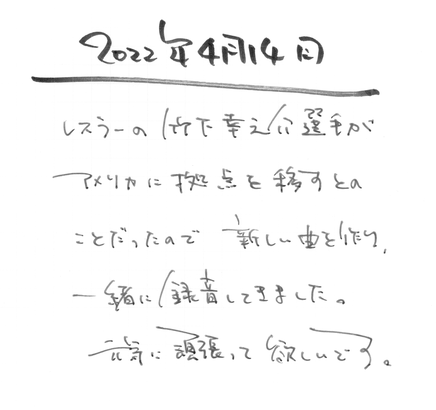 2022年4月14日
レスラーの竹下幸之介選手が
アメリカに拠点を移すとの
ことだったので 新しい曲を作り、
一緒に録音してきました。
元気に頑張って欲しいです。